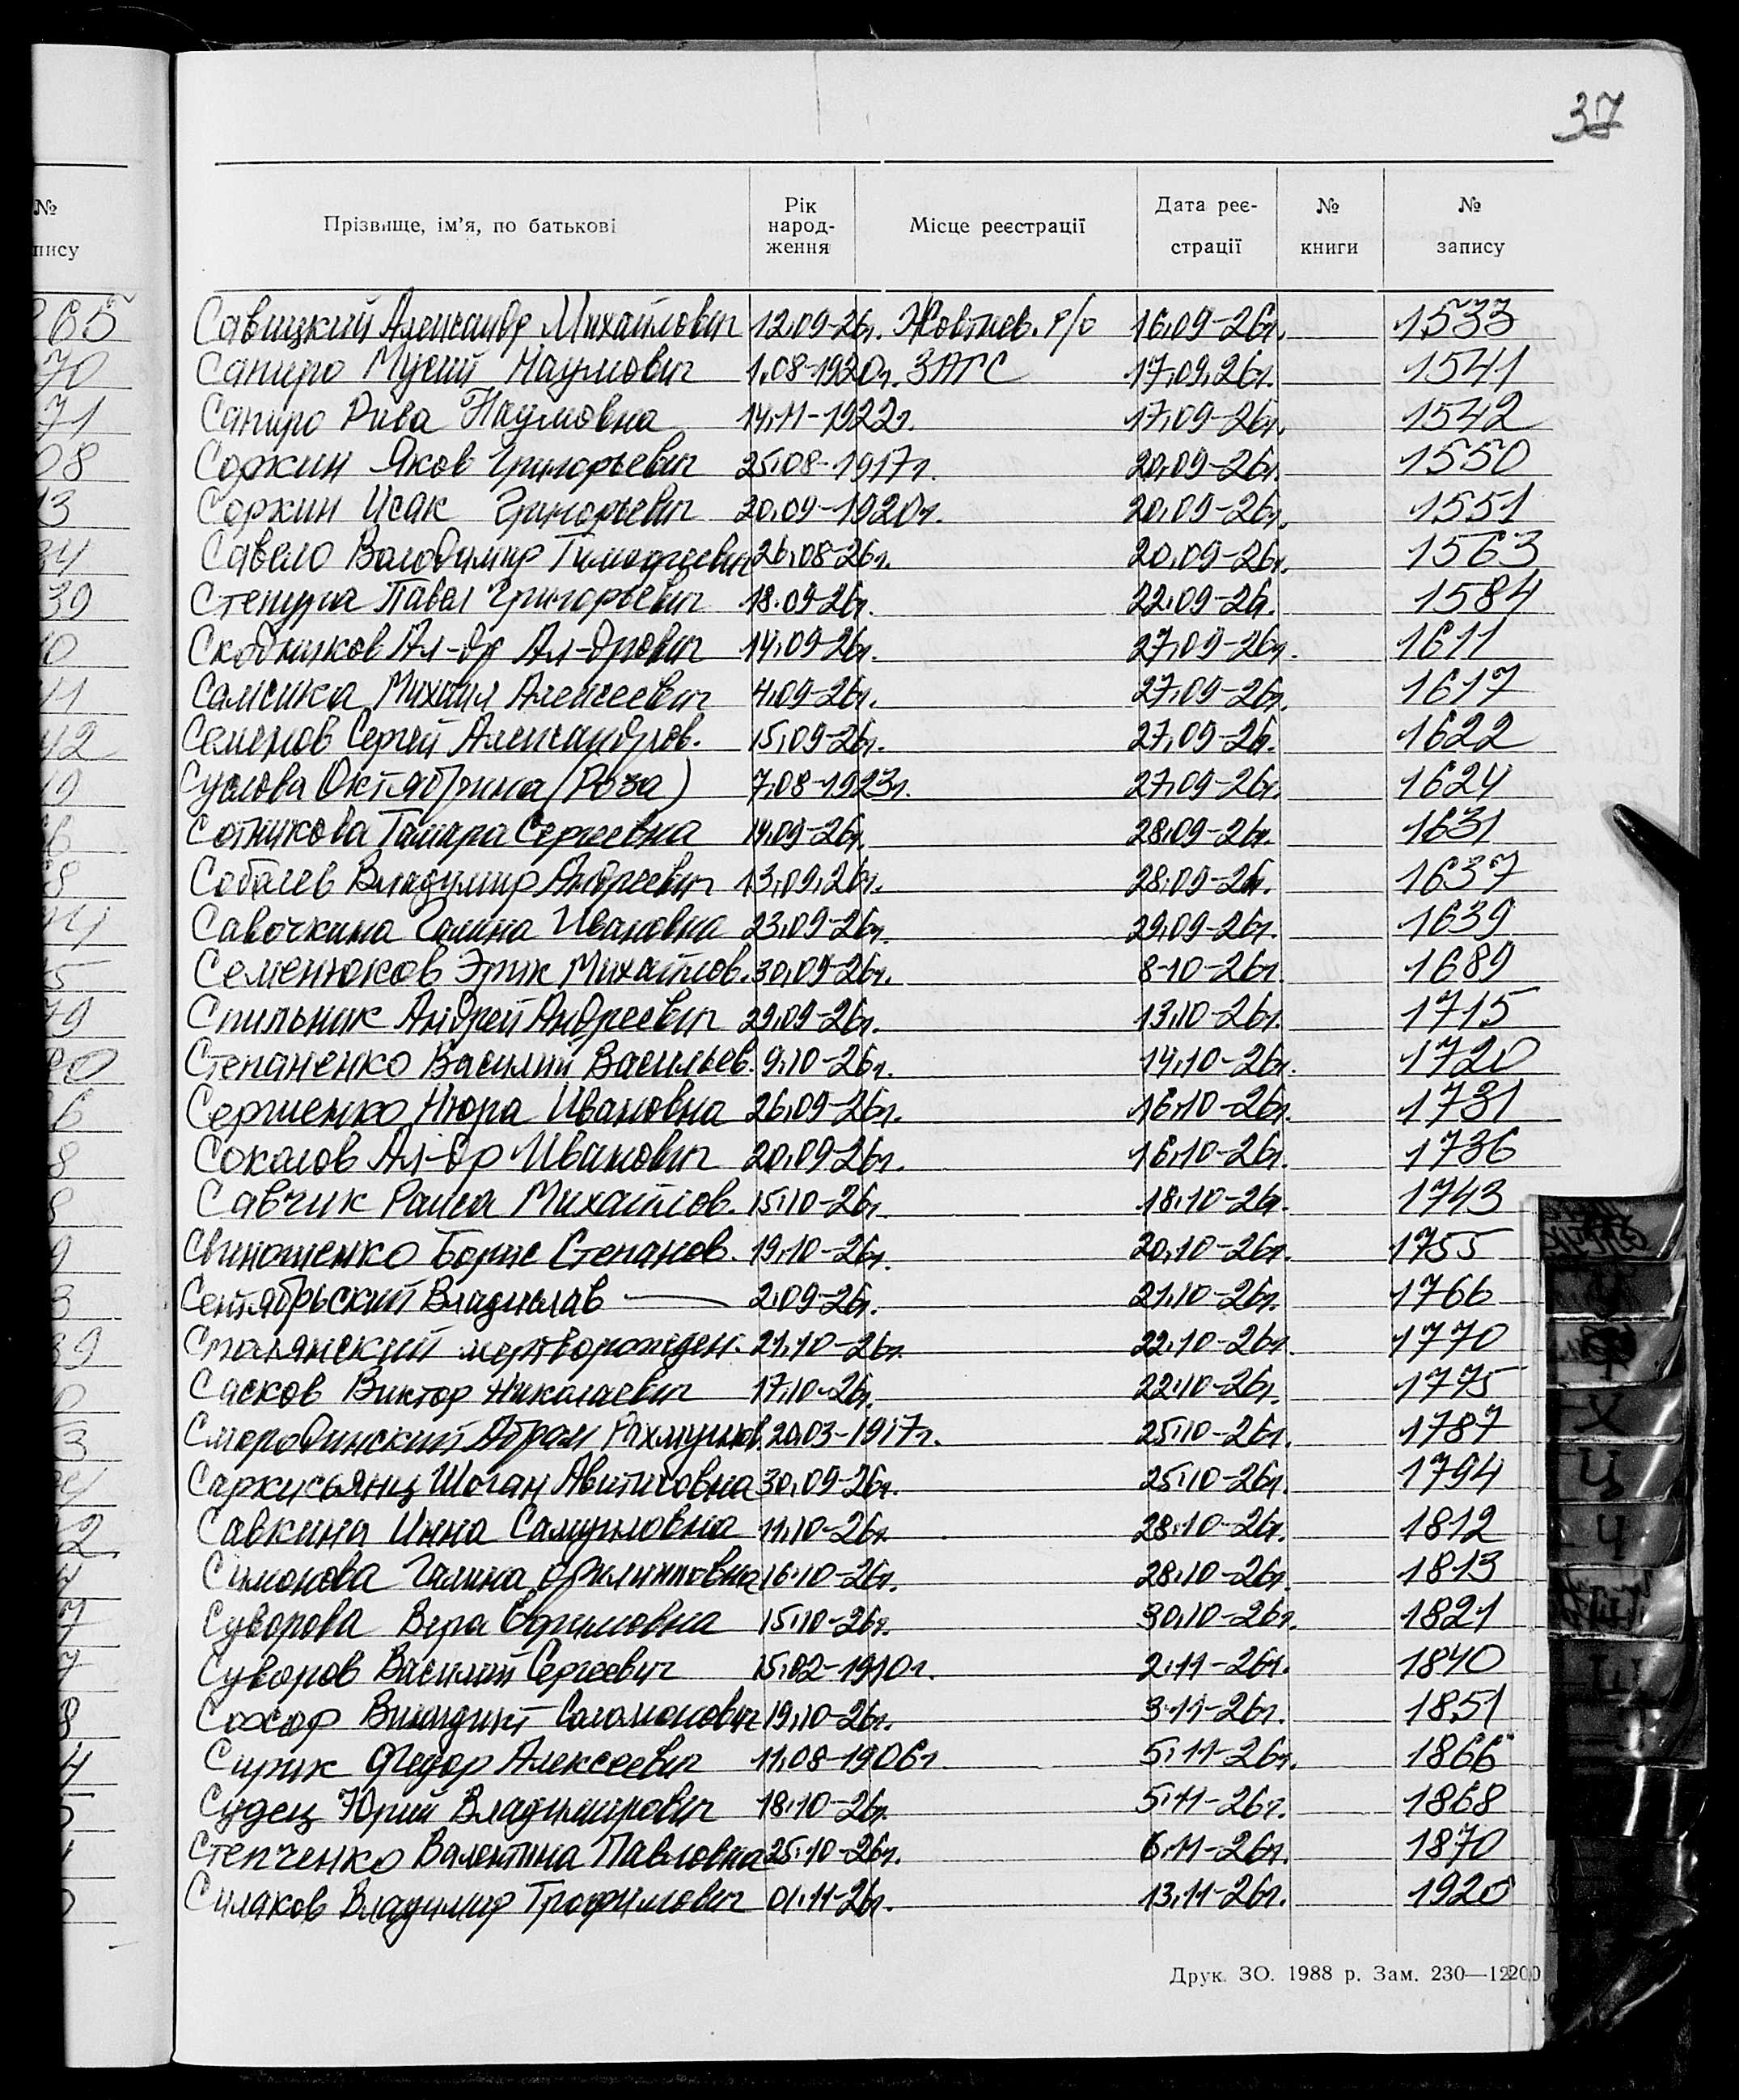 37
№
пису
Прізвище, ім'я, по батькові
Рік народ-ження
Місце реєстрації
Дата реє-страції
№ книги
№ запису
Савицкий Александр Михайлович 12.09-26г. Жовтнев. р/о 16.09-26г. 1533
Сапиро Мусий Наумович 1.08-1920г. ЗАГС 17.09.26г. 1541
Сапиро Рива Наумовна 14.11-1922г. 17.09-26г. 1542
Соркин Яков Григорьевич 25.08-1917г. 20.09-26г. 1550
Соркин Исак Григорьевич 20.09-1920г. 20.09-26г. 1551
Савело Володимир Тимофеевич 26.08-26г. 20.09-26г. 1563
Павел Григорьевич 18.09-26г. 22.09-26г. 1584
Ал-др Ал-дрович 14.09-26г. 27.09-26г. 1611
Михаил Алексеевич 4.09-26г. 27.09-26г. 1617
Семенов Сергей Александров. 15.09-26г. 27.09-26г. 1622
Суслова Октябрина (Роза) 7.08-1923г. 27.09-26г. 1624
Сотникова Тамара Сергеевна 14.09-26г. 28.09-26г. 1631
Собалев Владимир Андреевич 13.09.26г. 28.09-26г. 1637
Савочкина Галина Ивановна 23.09-26г. 29.09-26г. 1639
Семенюков Эрик Михайлов. 30.09-26г. 8-10-26г. 1689
Спильник Андрей Андреевич 29.09-26г. 13.10-26г. 1715
Степаненко Василий Васильев. 9.10-26г. 14.10-26г. 1720
Сергиенко Нюра Ивановна 26.09-26г. 16.10-26г. 1731
Соколов Ал-др Иванович 20.09-26г. 16.10-26г. 1736
Савчик Раиса Михайлов. 15.10-26г. 18.10-26г. 1743
Борис Степанов. 19.10-26г. 20.10-26г. 1755
Сентябрьский Владислав — 2.09-26г. 21.10-26г. 1766
мертворожден. 21.10-26г. 22.10-26г. 1770
Сасков Виктор Николаевич 17.10-26г. 22.10-26г. 1775
Смородинский Абрам 20.03-1917г. 25.10-26г. 1787
Саркисьянц Шоган 30.09-26г. 25.10-26г. 1794
Савкина Инна Самуиловна 11.10-26г. 28.10-26г. 1812
Симонова Галина Филипповна 16.10-26г. 28.10-26г. 1813
Суворова Вера Ефимовна 15.10-26г. 30.10-26г. 1821
Суворов Василий Сергеевич 15.02-1910г. 2.11-26г. 1840
Сахар Соломонович 19.10-26г. 3.11-26г. 1851
Сирик Федор Алексеевич 11.08-1906г. 5.11-26г. 1866
Судец Юрий Владимирович 18.10-26г. 5.11-26г. 1868
Степченко Валентина Павловна 25.10-26г. 6.11-26г. 1870
Силаков Владимир Трофимович 01.11-26г. 13.11-26г. 1920
Друк. ЗО. 1988 р. Зам. 230—12200
Х
Ц
Ч